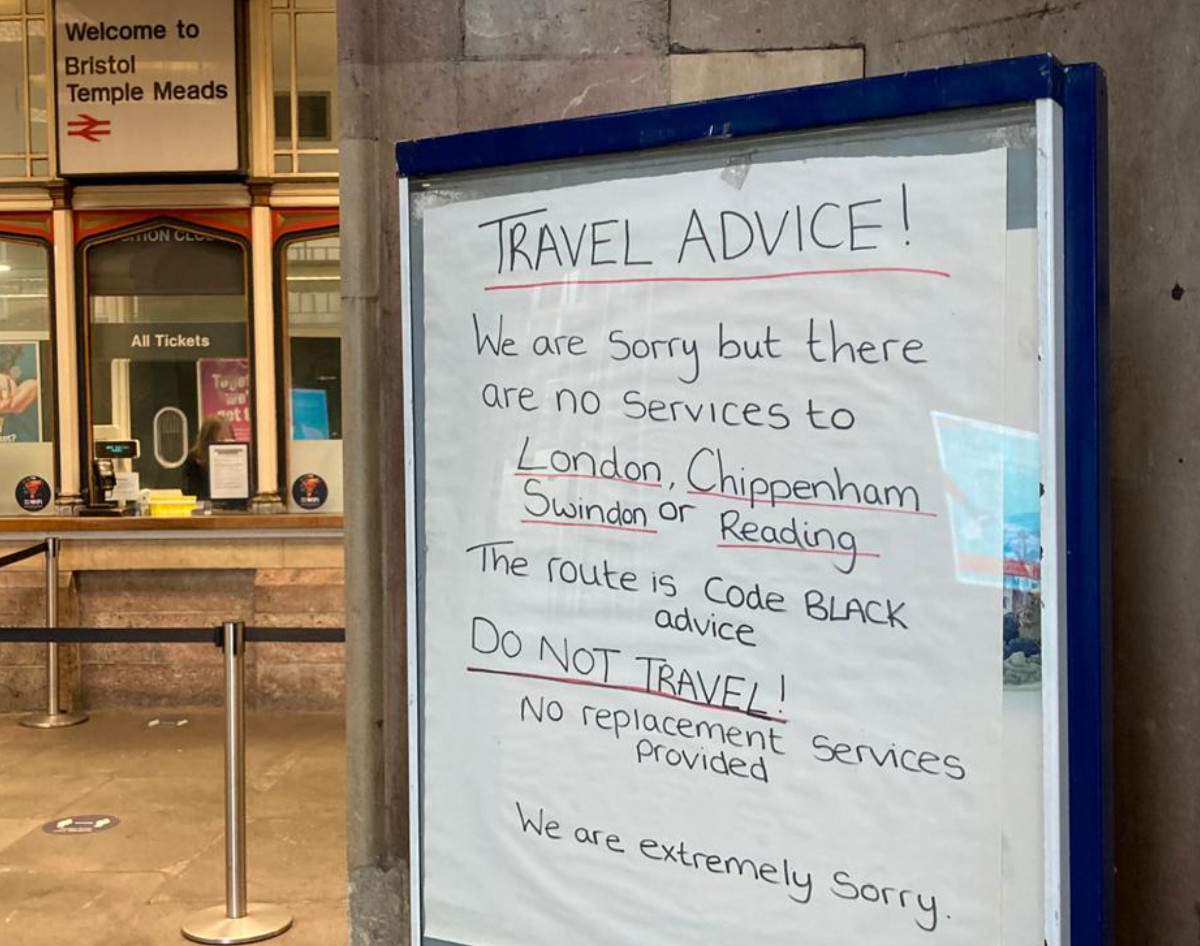 Welcome to
Bristol
Temple Meads
All Tickets
TRAVEL ADVICE!
We are sorry but there
are no services to
London, Chippenham
Swindon or Reading
The route is Code BLACK
advice
DO NOT TRAVEL!
No replacement services
provided
We are extremely sorry.